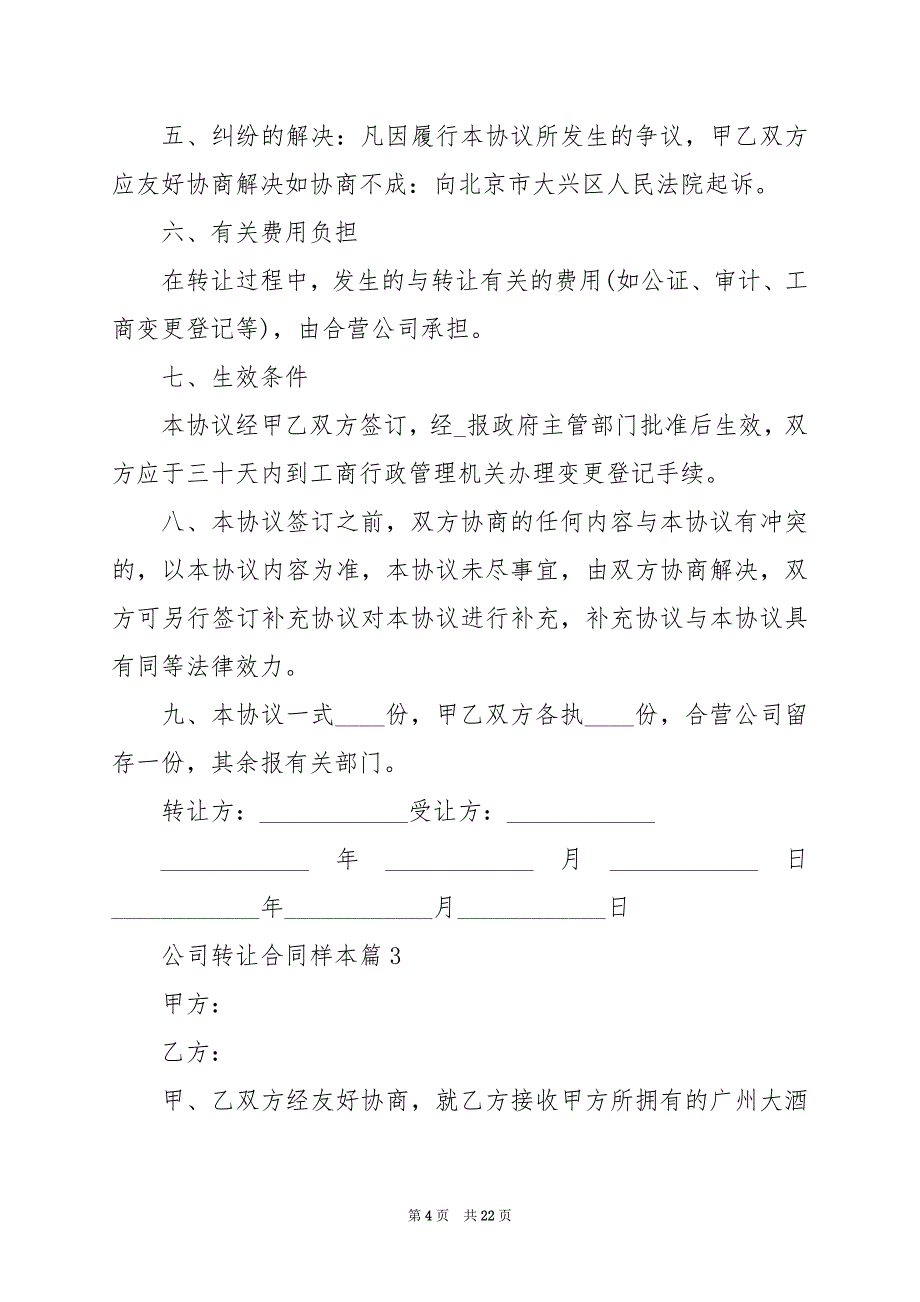 五、纠纷的解决：凡因履行本协议所发生的争议，甲乙双方
应友好协商解决如协商不成：向北京市大兴区人民法院起诉。
六、有关费用负担
在转让过程中，发生的与转让有关的费用(如公证、审计、工
商变更登记等)，由合营公司承担。
七、生效条件
本协议经甲乙双方签订，经_报政府主管部门批准后生效，双
方应于三十天内到工商行政管理机关办理变更登记手续。
八、本协议签订之前，双方协商的任何内容与本协议有冲突
的，以本协议内容为准，本协议未尽事宜，由双方协商解决，双
方可另行签订补充协议对本协议进行补充，补充协议与本协议具
有同等法律效力。
九、本协议一式____份，甲乙双方各执____份，合营公司留
存一份，其余报有关部门。
转让方：____________受让方：____________
____________ 年 ____________ 月 ____________ 日
____________年____________月____________日
公司转让合同样本篇3
甲方：
乙方：
甲、乙双方经友好协商，就乙方接收甲方所拥有的广州大酒
第 4 页 共 22 页